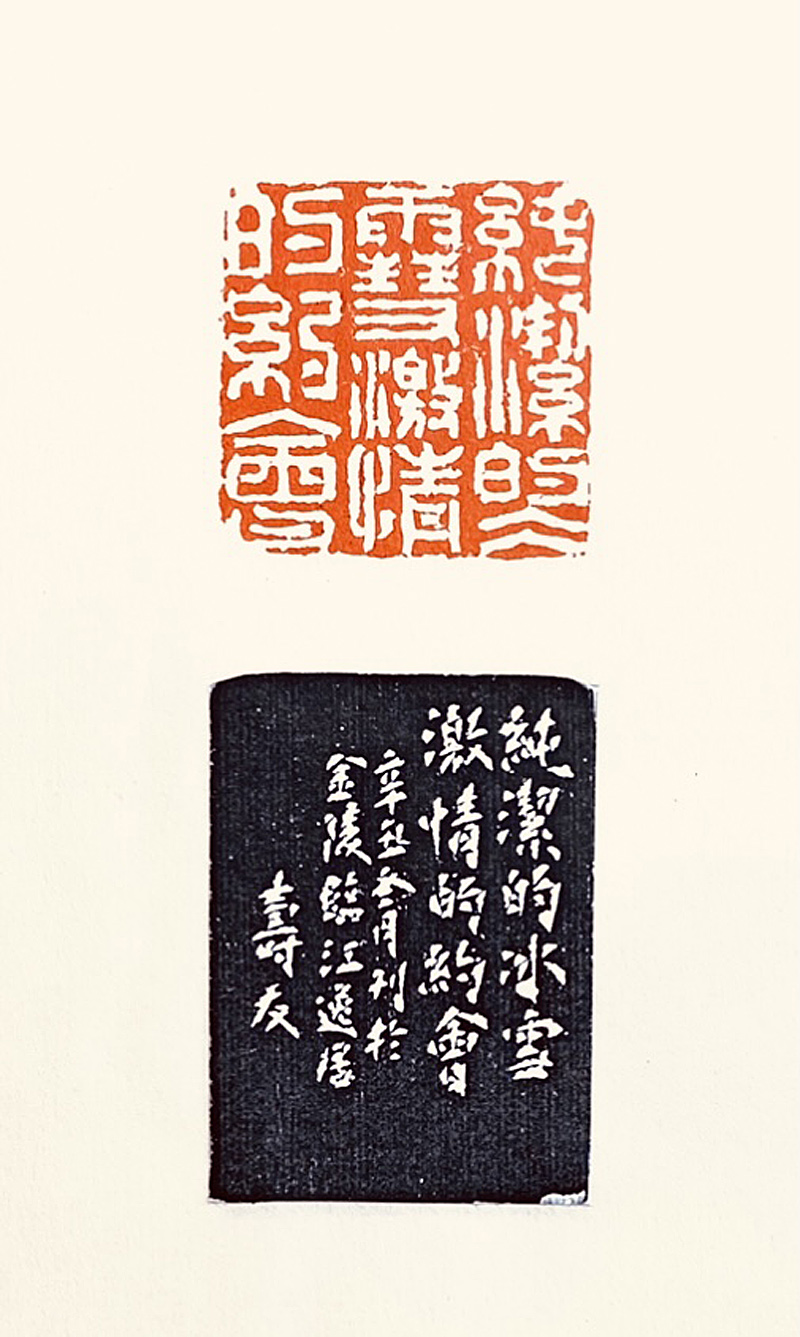 純潔的仌
雪激情
的約會
純潔的冰雪
激情的約會
辛丑月刊於
金陵臨江
壽友